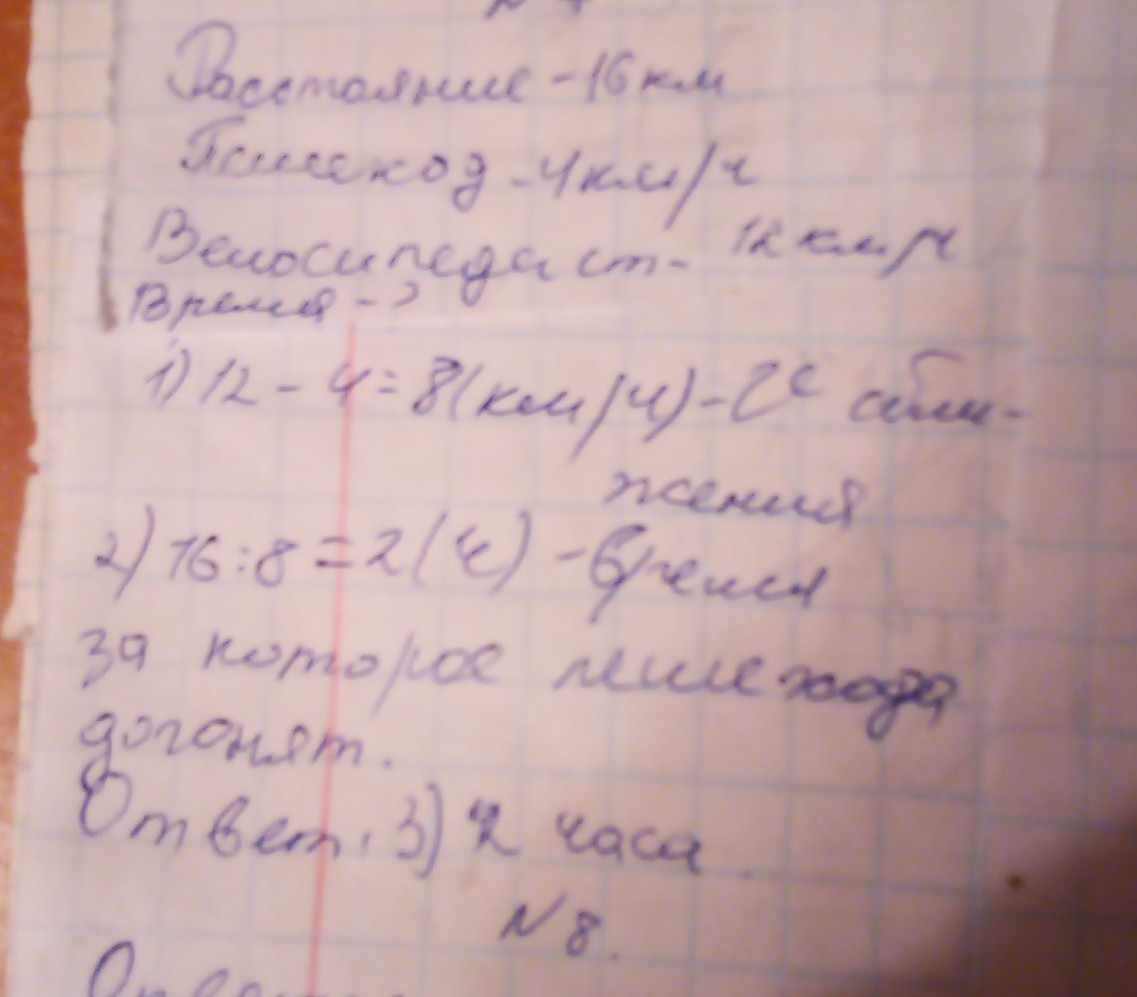 Расстояние - 16 км
Пешеход - 4 км/ч
Велосипедист - 12 км/ч
Время - ?
1) 12 - 4 = 8 (км/ч) - сбли-
жения
2) 16 : 8 = 2 (ч) - время
за которое пешехода
догонят.
Ответ. 3) 2 часа
№ 8.